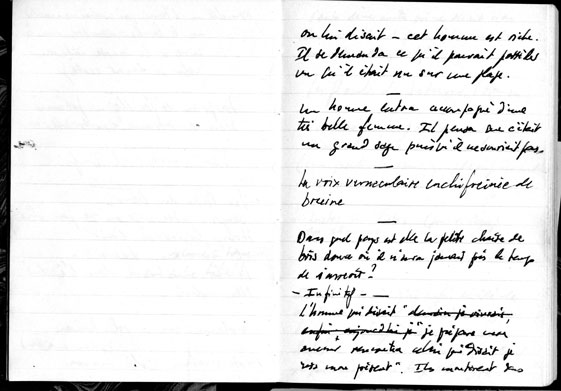 on lui disait – cet homme est riche.
Il se demanda ce qu'il pouvait posséder
vu qu'il était nu sur une plage.
—
un homme entra accompagné d'une
très belle femme. Il pensa que c'était
un grand sage puisqu'il ne souriait pas.
—
La voix vernaculaire enchifrenée de
bruine
—
Dans quel pays est-elle la petite chaise de
bois doux où il n'aura jamais pris le temps
de s'asseoir?
– Infinitif –
L'homme qui disait "demain je vivrai,
enfin aujourd'hui je" je prépare mon
avenir rencontra celui qui disait je
mon présent". Ils